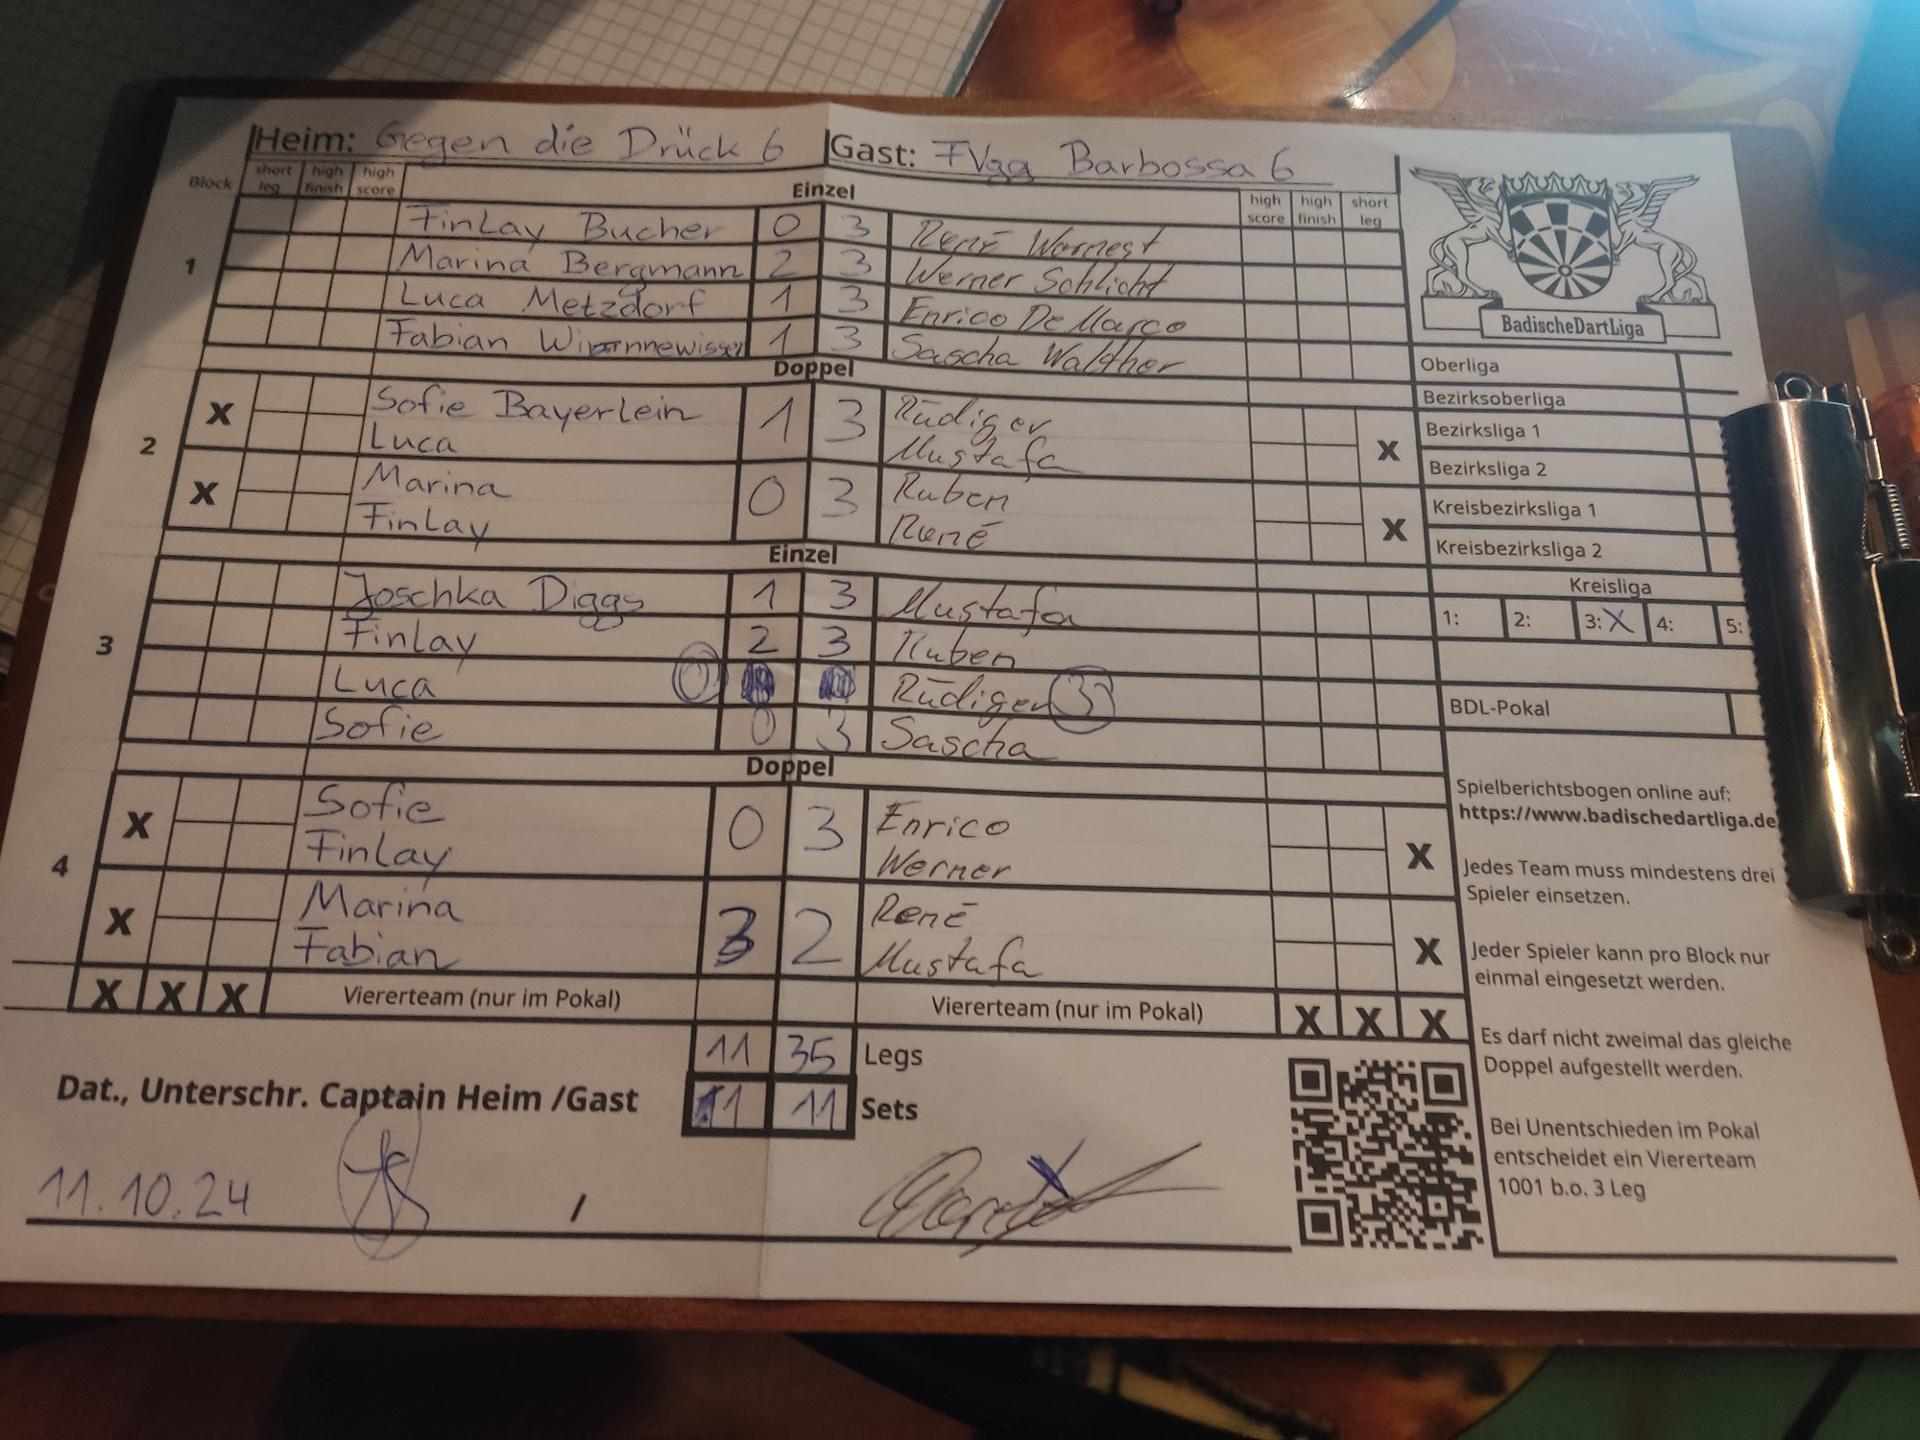 Heim: Gegen die Drück 6 Gast: FVgg Barbossa 6
Block short leg high finish high score Einzel high score high finish short leg
1
Finlay Bucher 0 3 René Warnest
Marina Bergmann 2 3 Werner Schlicht
Luca Metzdorf 1 3 Enrico De Marco
Fabian 1 3 Sascha Walther
Doppel
2
X Sofie Bayerlein 1 3 Rüdiger X
Luca Mustafa
X Marina 0 3 Ruben X
Finlay René
Einzel
3
Joschka Diggs 1 3 Mustafa
Finlay 2 3 Ruben
Luca 0 Rüdiger 3
Sofie 0 3 Sascha
Doppel
4
X Sofie 0 3 Enrico X
Finlay Werner
X Marina 3 2 René X
Fabian Mustafa
X X X Viererteam (nur im Pokal) Viererteam (nur im Pokal) X X X
11 35 Legs
1 11 Sets
Dat., Unterschr. Captain Heim /Gast
11.10.24 /
BadischeDartLiga
Oberliga
Bezirksoberliga
Bezirksliga 1
Bezirksliga 2
Kreisbezirksliga 1
Kreisbezirksliga 2
Kreisliga
1: 2: 3: X 4: 5:
BDL-Pokal
Spielberichtsbogen online auf:
https://www.badischedartliga.de
Jedes Team muss mindestens drei
Spieler einsetzen.
Jeder Spieler kann pro Block nur
einmal eingesetzt werden.
Es darf nicht zweimal das gleiche
Doppel aufgestellt werden.
Bei Unentschieden im Pokal
entscheidet ein Viererteam
1001 b.o. 3 Leg